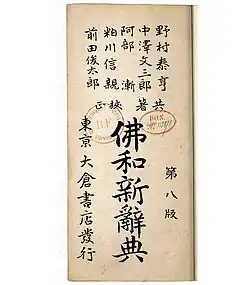 野村泰亨
中澤文三郎
阿部漸
粕川信親
前田俊太郎
共著
校正
佛和新辭典
第八版
東京大倉書店發行